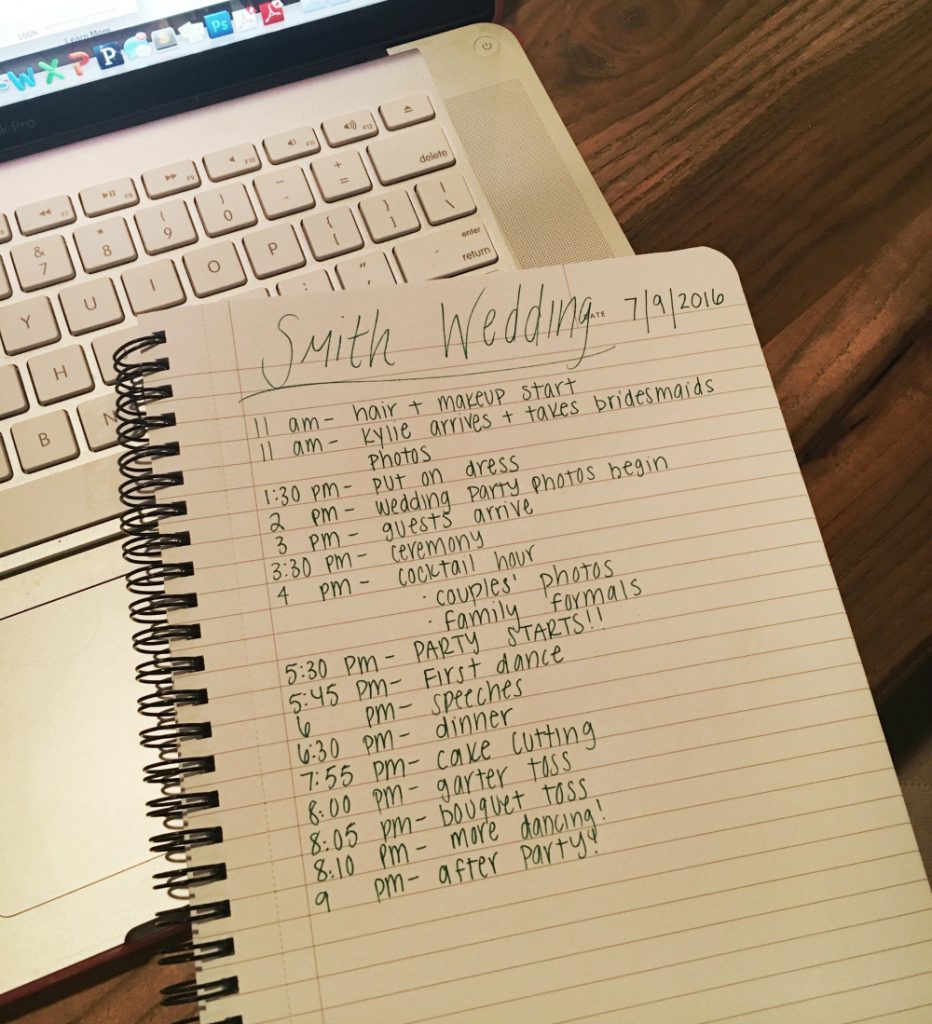 100%
Learn More
W X P P Ps
k Pro
F7 F8 F9 F10 F11 F12
& 7 * 8 ( 9 ) 0 _ - + = delete
Y U I O P { [ } ] | \
H : ; " ' enter return
B N
DATE
Smith Wedding 7/9/2016
11 am - hair + makeup start
11 am - Kylie arrives + takes bridesmaids
photos
1:30 pm - put on dress
2 pm - wedding party photos begin
3 pm - guests arrive
3:30 pm - ceremony
4 pm - cocktail hour
· couples' photos
· family formals
5:30 pm - PARTY STARTS!!
5:45 pm - First dance
6 pm - speeches
6:30 pm - dinner
7:55 pm - cake cutting
8:00 pm - garter toss
8:05 pm - bouquet toss
8:10 pm - more dancing!
9 pm - after party!